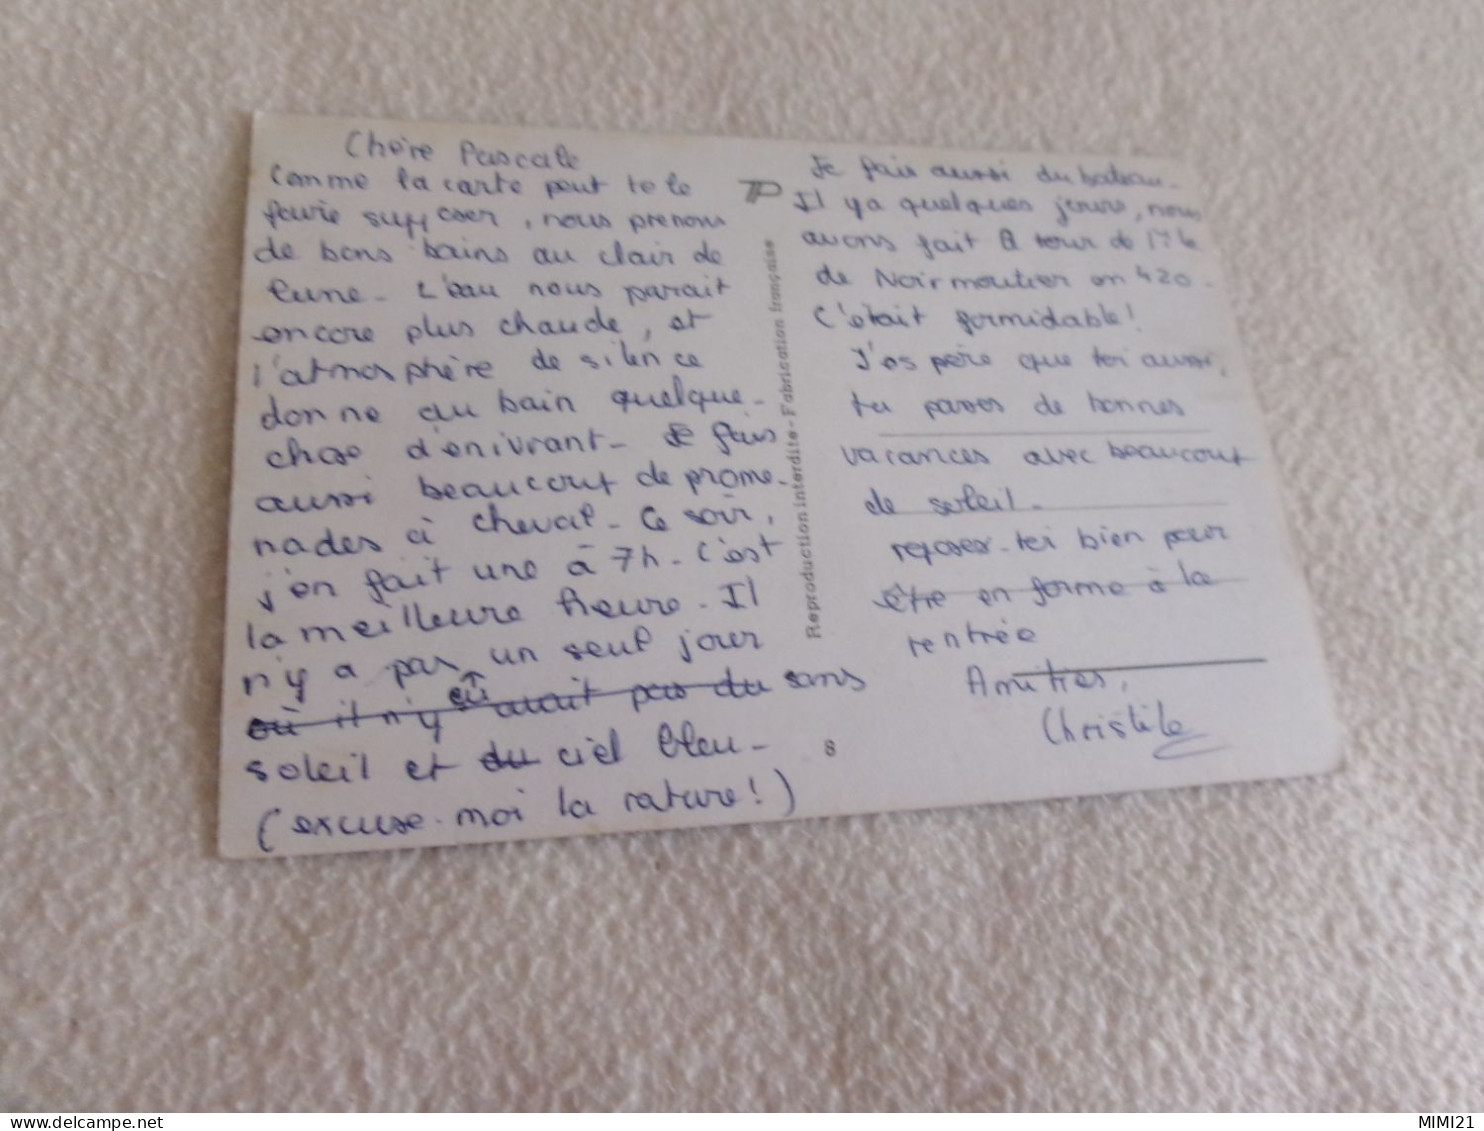 Chère Pascale
Comme la carte peut te le
faire supposer, nous prenons
de bons bains au clair de
lune - L'eau nous parait
encore plus chaude, et
l'atmosphère de silence
donne au bain quelque -
chose d'enivrant - Je fais
aussi beaucoup de prome -
nades à cheval - Ce soir,
j'en fait une à 7h - C'est
la meilleure heure. Il
n'y a pas un seul jour
où il n'y où avait pas du sans
soleil et du ciel bleu -
(excuse-moi la rature!)
TP
Reproduction interdite - Fabrication française
8
Je fais aussi du bateau -
Il y a quelques jours, nous
avons fait le tour de l'île
de Noirmoutier en 420 -
C'était formidable!
J'espère que toi aussi,
tu passes de bonnes
vacances avec beaucoup
de soleil -
reposes-toi bien pour
être en forme à la
rentrée
Amitiés,
Christile
MIMI21